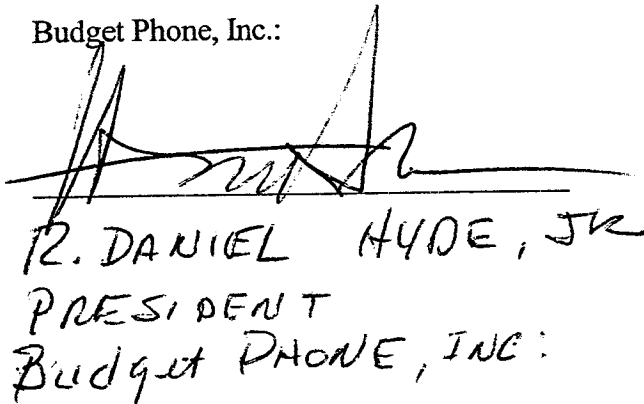 Budget Phone, Inc.:
R. DANIEL HYDE, JR
PRESIDENT
Budget PHONE, INC.